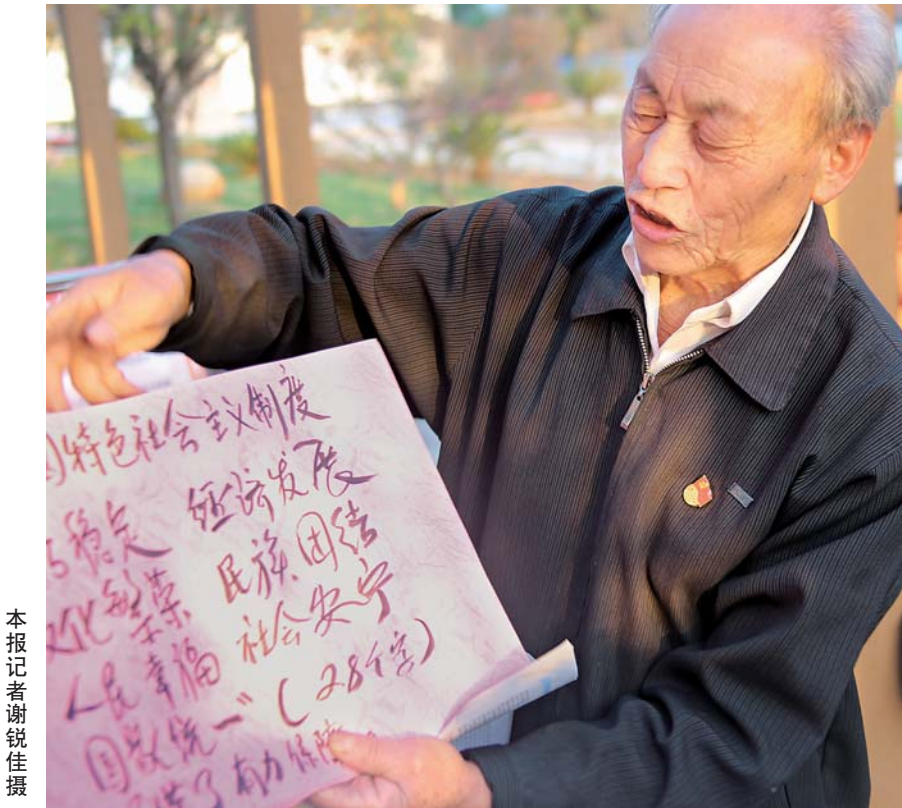 特色社会主义制度
稳定 经济发展
文化繁荣 民族团结
人民幸福 社会安宁
国家统一”（28个字）
了有力保障
本报记者谢锐佳摄